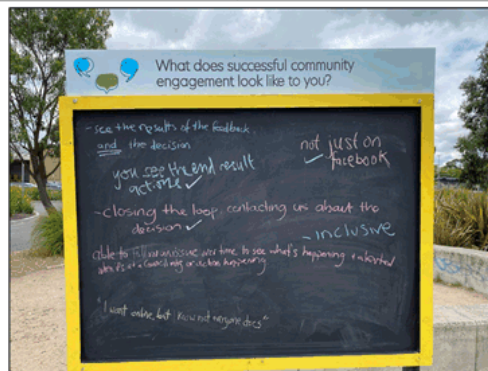 What does successful community
engagement look like to you?
- see the results of the feedback,
and the decision
not just on
✓ facebook
you see the end result
actions ✓
- closing the loop, contacting us about the
decision ✓
- inclusive
able to follow an issue over time to see what's happening + alerted
when it's at a council mtg or action happening
"I want online, but I know not everyone does"